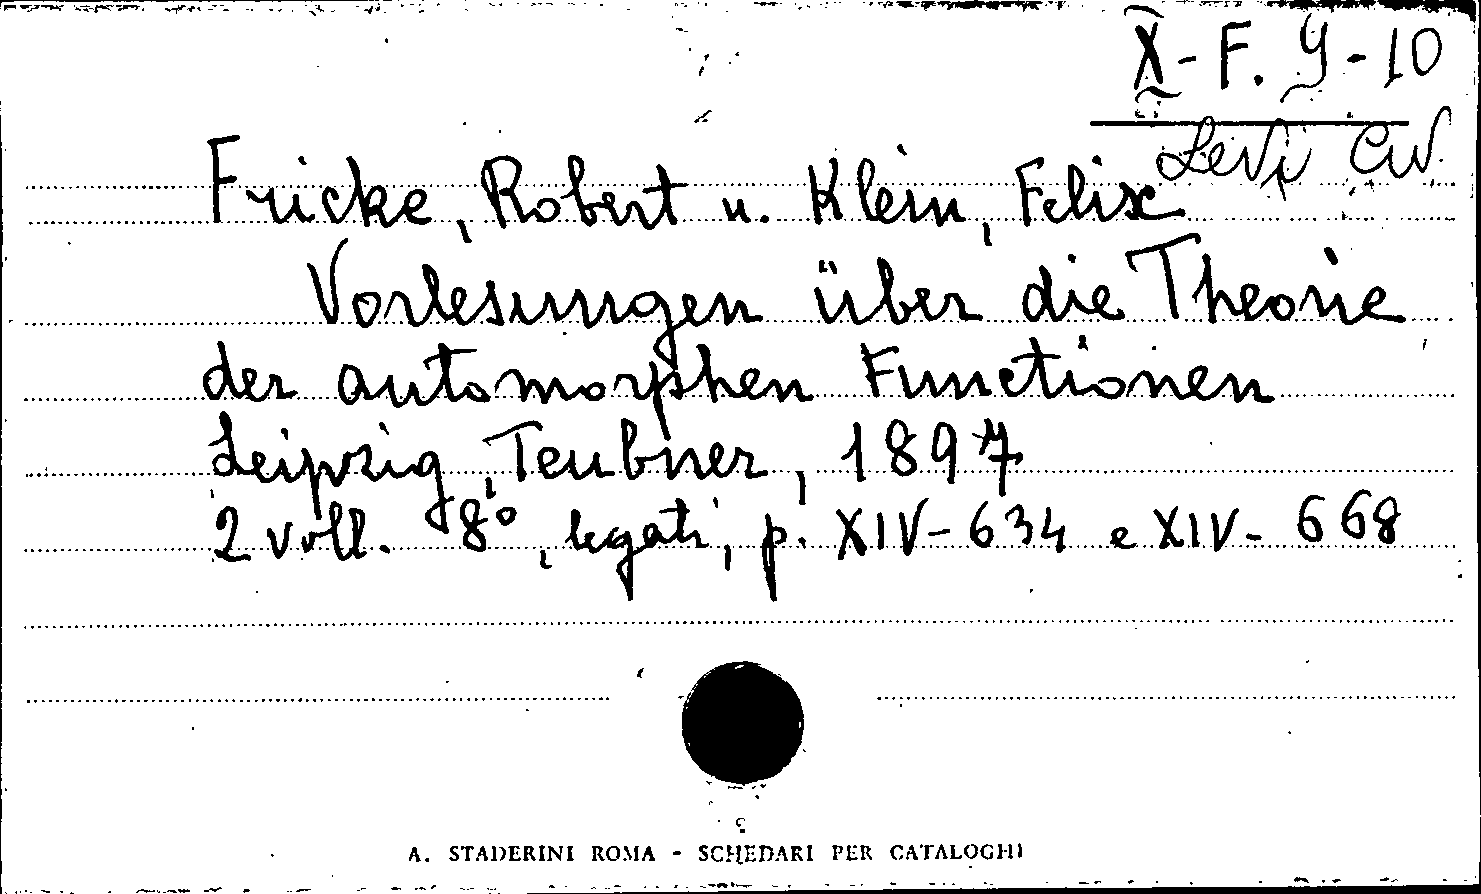 X - F. 9 - 10
Levi Civ.
Fricke, Robert u. Klein, Felix
Vorlesungen über die Theorie
der automorphen Functionen
Leipzig, Teubner, 1897
2 voll. 8°, legati, p. XIV-634 e XIV-668
A. STADERINI ROMA - SCHEDARI PER CATALOGHI